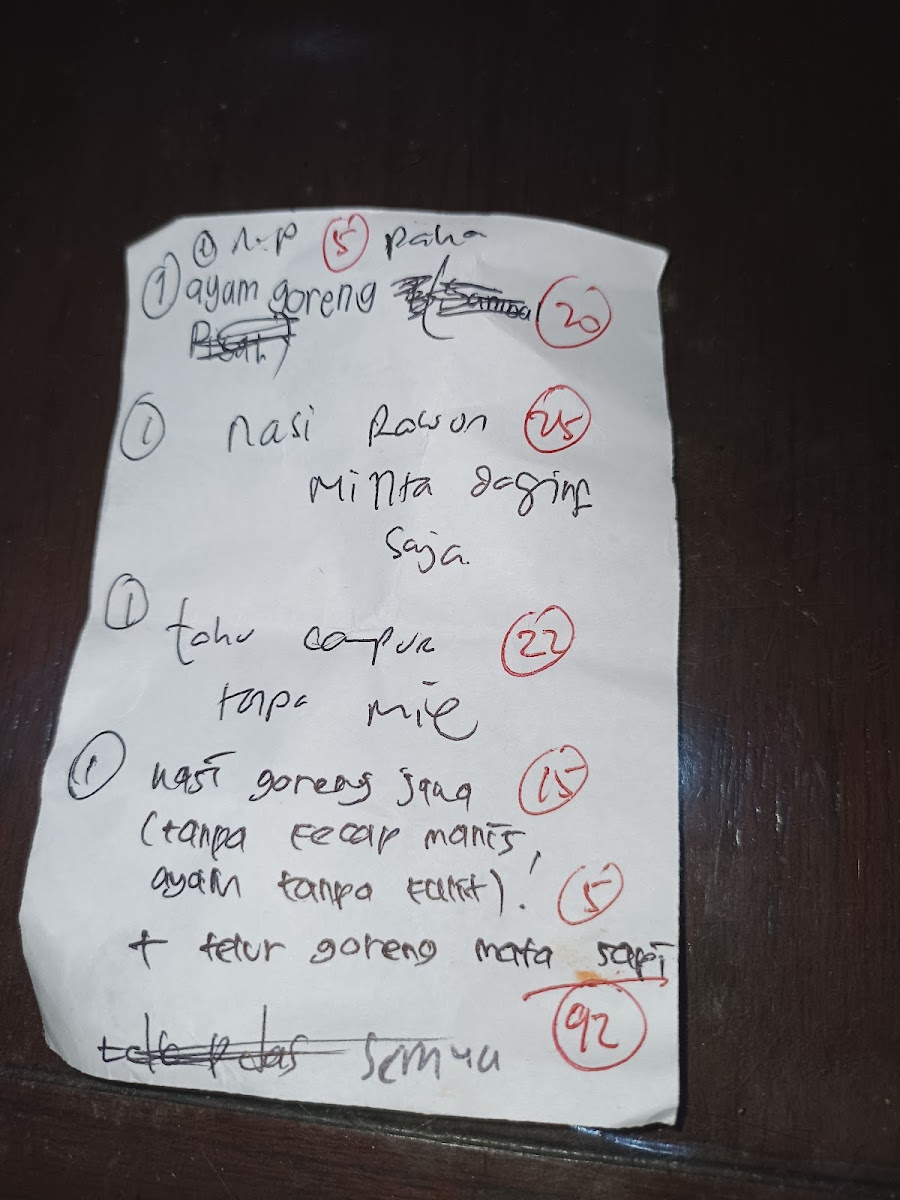 ① n.p ⑤ paha
① ayam goreng 20
① nasi Rawon 25
Minta daging
Saja
① tahu campur 22
tanpa Mie
① nasi goreng jawa 15
(tanpa kecap manis,
ayam tanpa kulit)! 5
+ telur goreng mata sapi
92
semua